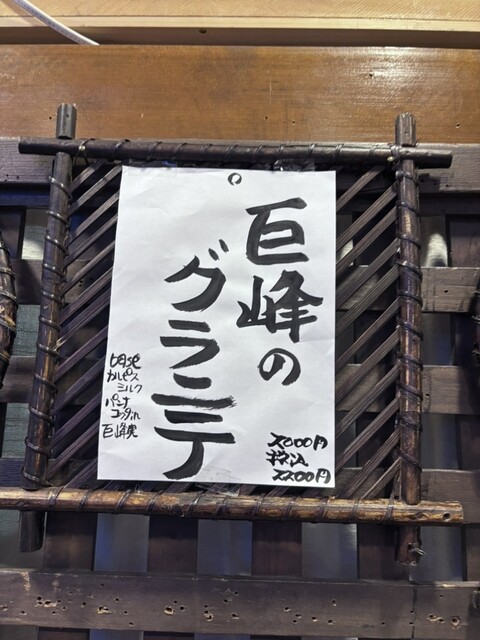 巨峰の
グラニテ
2000円
税込
2200円
カルピス
ミルク
パンナ
コッタ
巨峰実